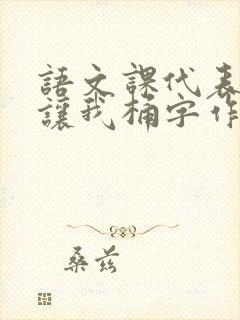 語文課代表
讓我桶字作
桑茲